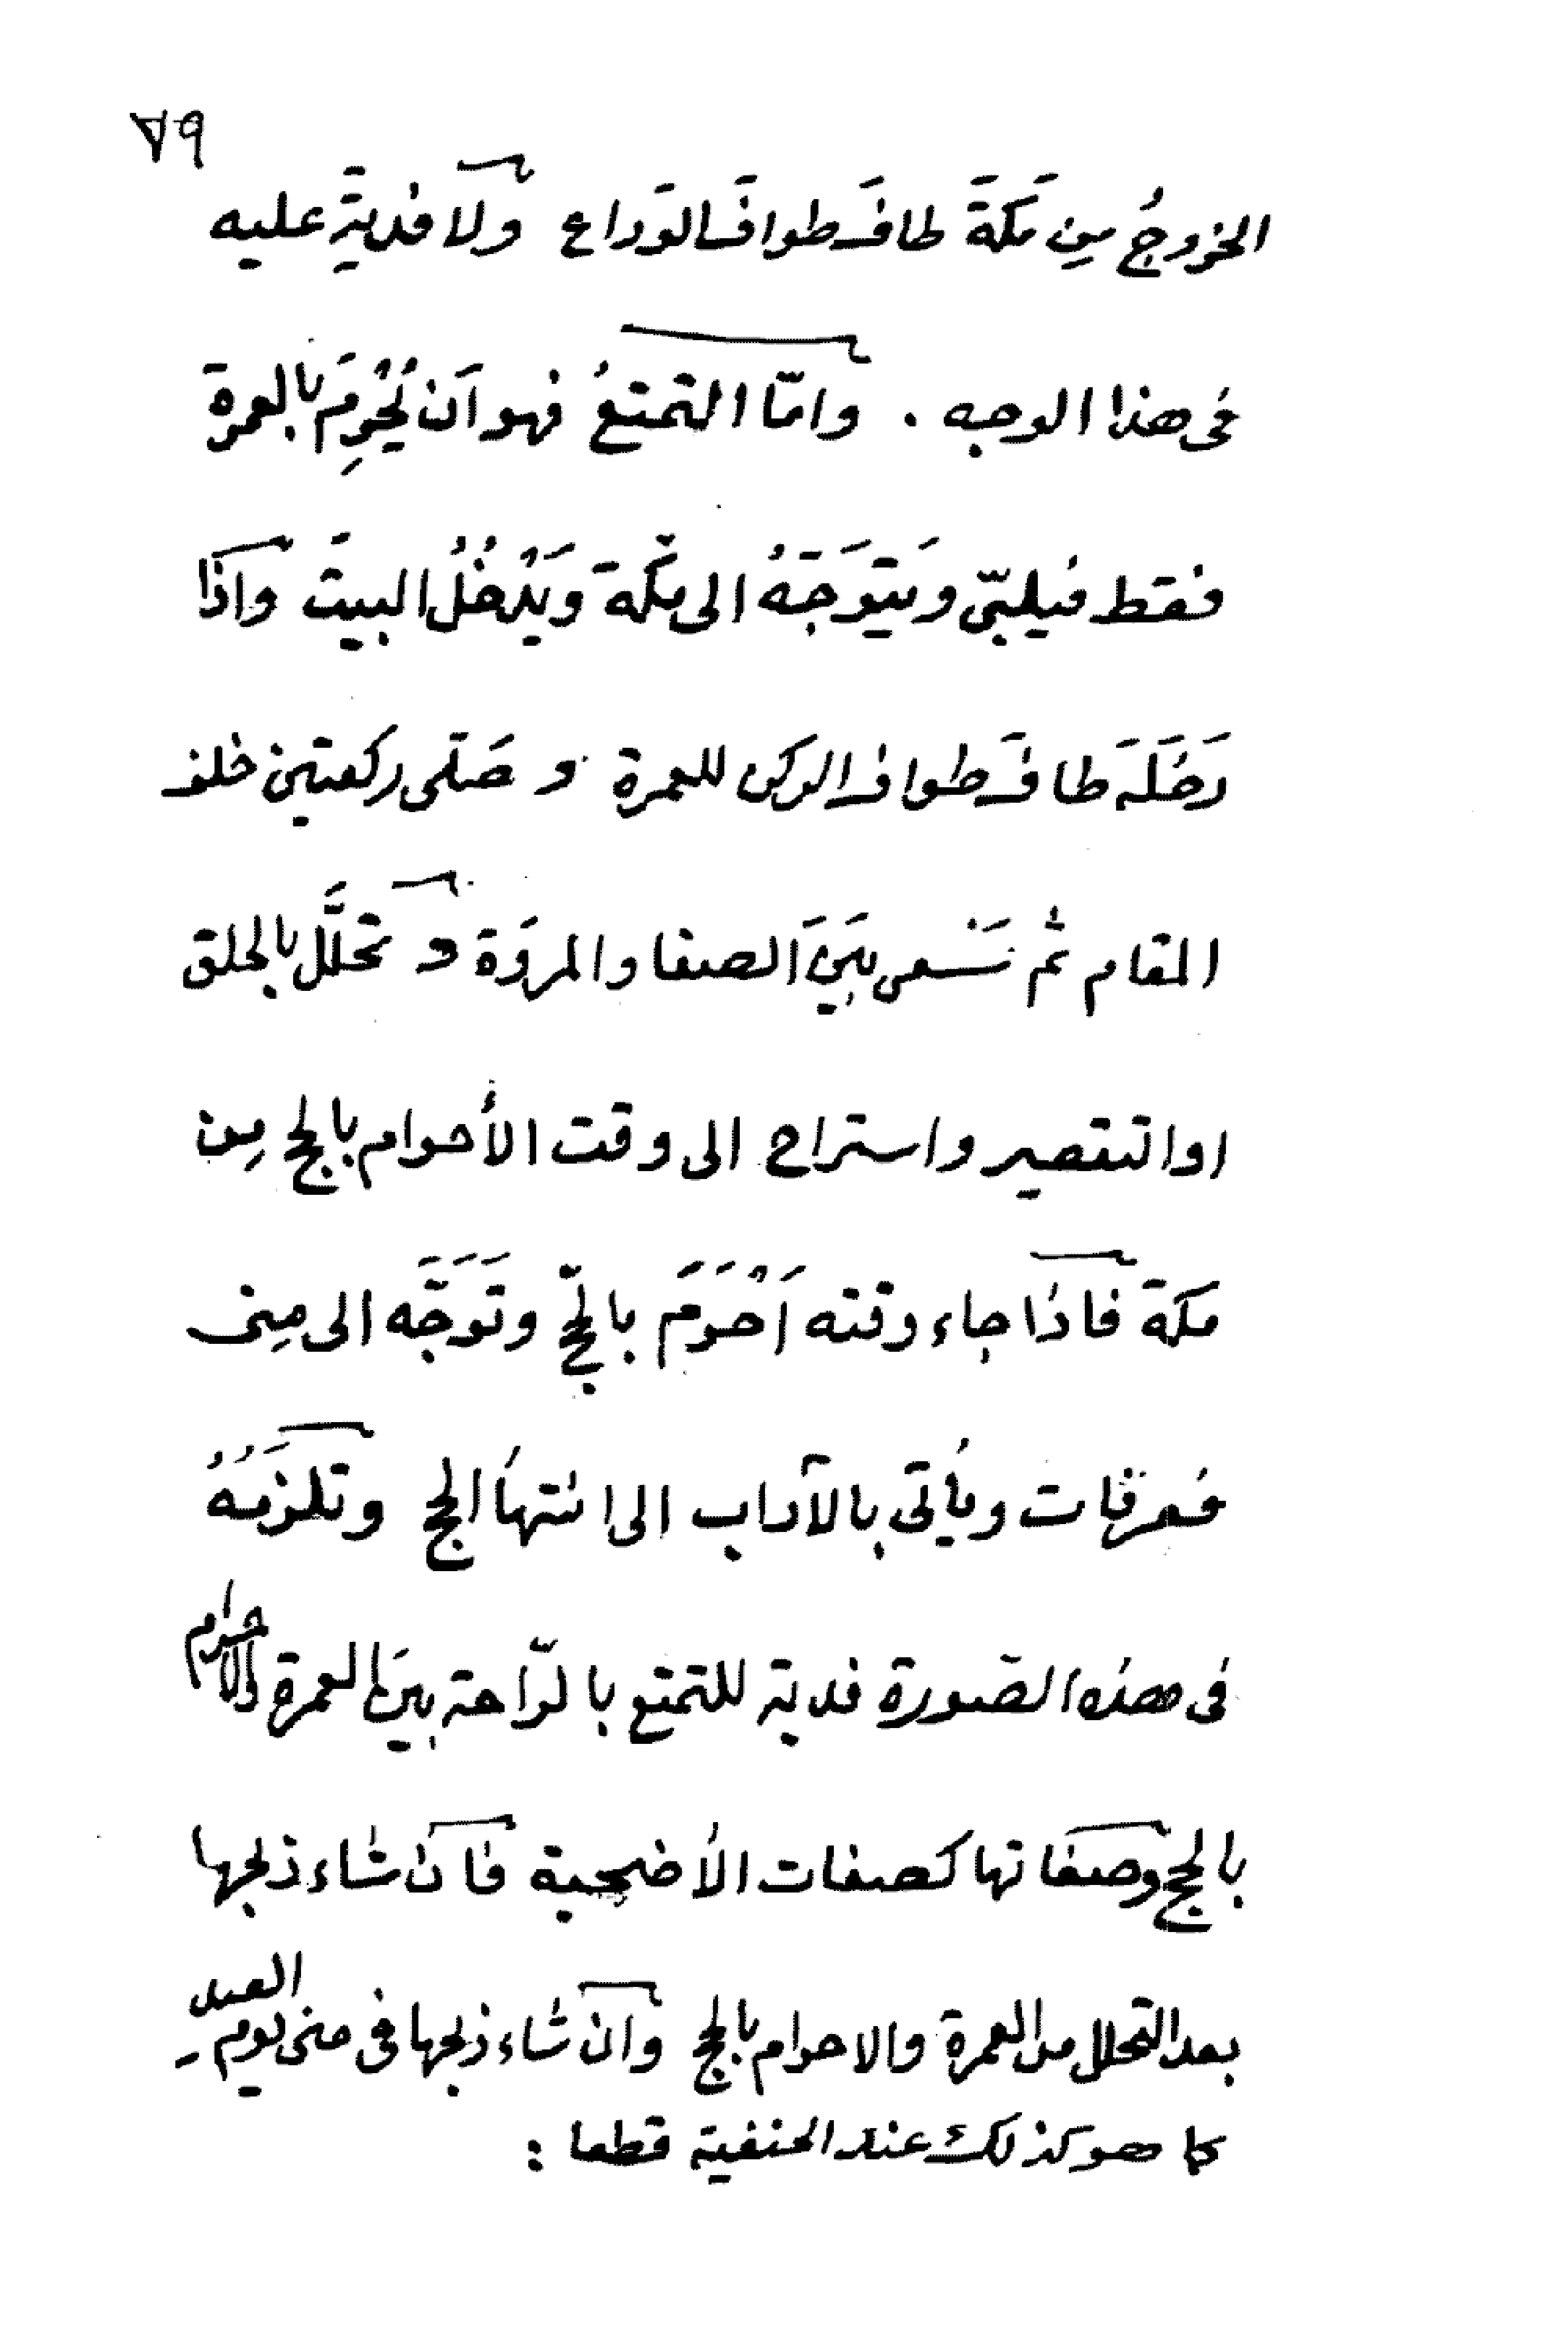 ٧٩
الخروجُ مِن مَكَّةَ طافَ طوافَ الوَداع وَلا فديةَ عليه
فى هذا الوجه . وامّا التمتعُ فهو اَن يُحْرِمَ بالعمرة
فقط فيلبّى و يَتَوَجَّهُ الى مكّة وَيَدْخُلُ البيتَ واذا
دَخَلَهَ طافَ طواف الركن للعمرة و صَلّى ركعتين خلف
المقام ثم سَعى بَينَ الصفا والمروَة و تحلَّل بالحلق
او التقصير واستراح الى وقت الأحرام بالحج مِن
مكة فاذا جاء وقته اَحْرَمَ بالحجّ وتَوَجَّه الى مِنى
فعرفات ويأتى بالآداب الى انتهاُ الحج وتلزَمُهُ
فى هذه الصّورة فدية للتمتع بالرّاحة بينَ العمرة والاحرام
بالحج وصفاتها كصفات الأضحية فان شاء ذبحها
بعد التحلل من العمرة والاحرام بالحج وان شاء ذبحها فى منى يوم العيد
كما هو كذلك عند الحنفية قطعا :